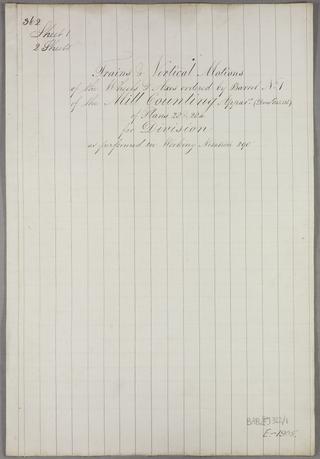 362
Sheet 1
2 Sheets
Trains & Vertical Motions
of the Wheels & Axes ordered by Barrel No. 1
of the Mill Counting Appars.
of Plans 28 &
for Division
as performed in Working Notation 290
BAB/F/362/1
E-1905.